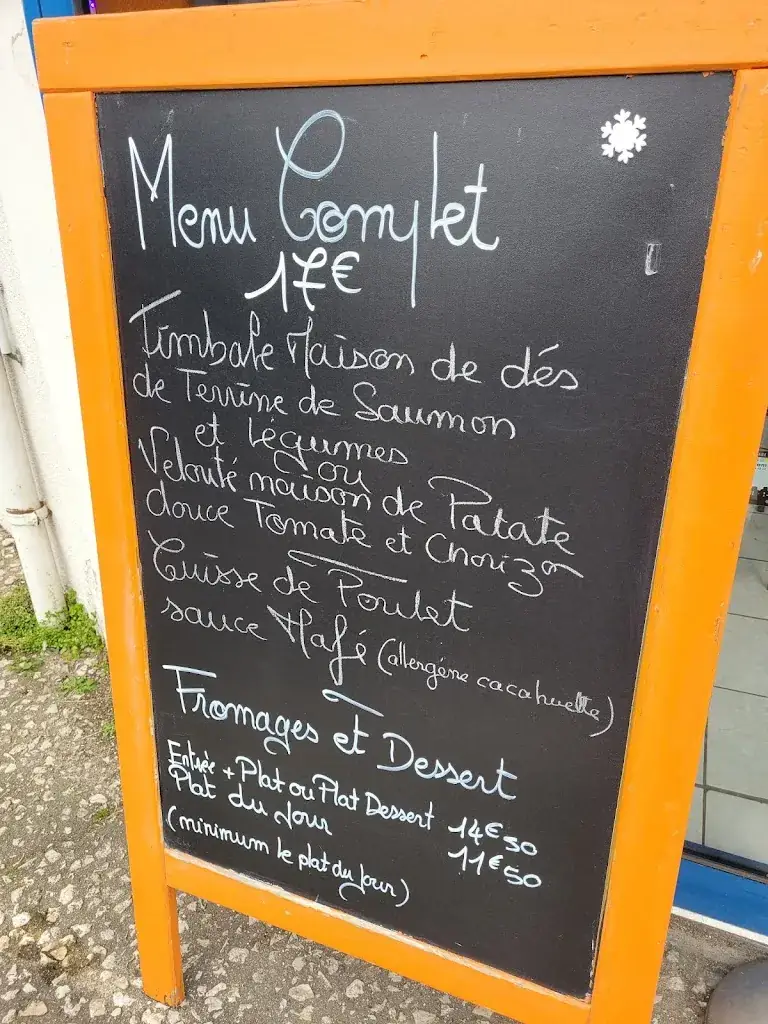 Menu Complet
17€
Timbale Maison de dés
de Terrine de Saumon
et Légumes
ou
Velouté maison de Patate
douce Tomate et Chorizo
Cuisse de Poulet
sauce Mafé (allergéne cacahuette)
Fromages et Dessert
Entrée + Plat ou Plat Dessert 14€50
Plat du Jour 11€50
(minimum le plat du jour)